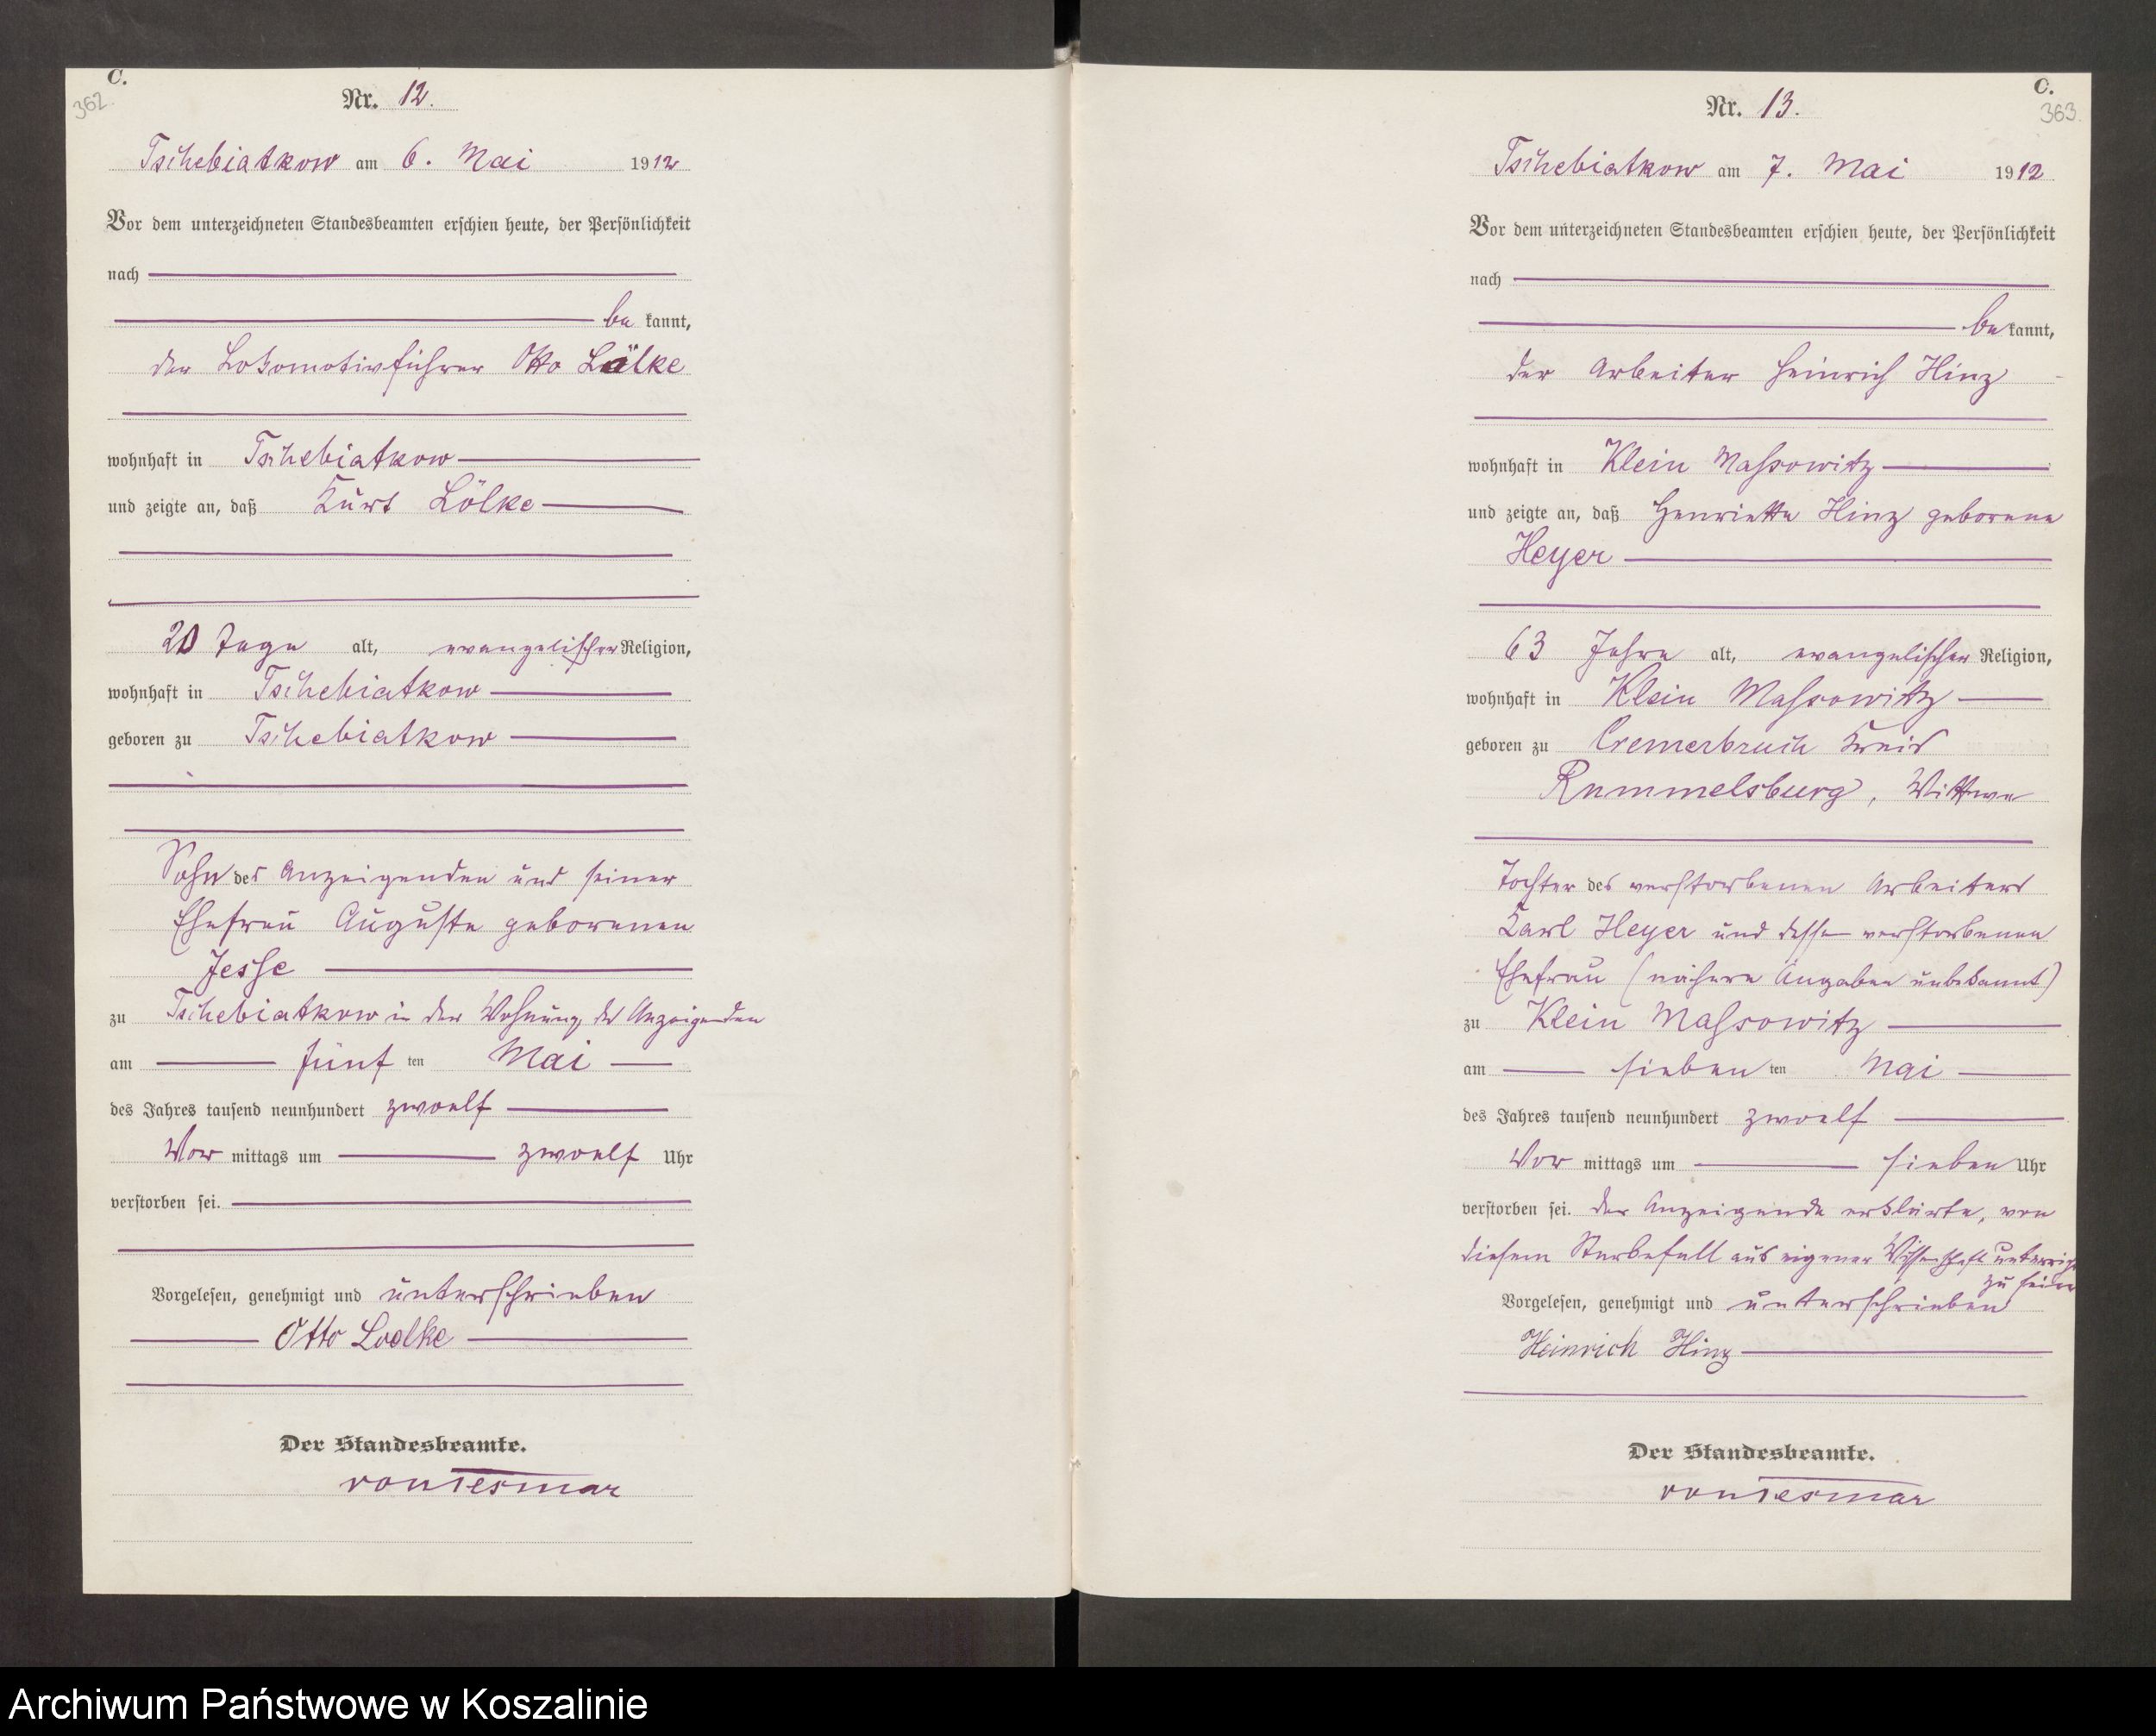 C.
362.
Nr. 12.
Tschebiatkow am 6. Mai 1912
Vor dem unterzeichneten Standesbeamten erschien heute, der Persönlichkeit
nach
be kannt,
der Lokomotivführer Otto Lölke
wohnhaft in Tschebiatkow
und zeigte an, daß Kurt Lölke
20 Tage alt, evangelischer Religion,
wohnhaft in Tschebiatkow
geboren zu Tschebiatkow
Sohn des Anzeigenden und seiner
Ehefrau Auguste geborenen
Jesse
zu Tschebiatkow in der Wohnung des Anzeigenden
am fünf ten Mai
des Jahres tausend neunhundert zwoelf
Vor mittags um zwoelf Uhr
verstorben sei.
Vorgelesen, genehmigt und unterschrieben
Otto Loelke
Der Standesbeamte.
von Tesmar
C.
363.
Nr. 13.
Tschebiatkow am 7. Mai 1912
Vor dem unterzeichneten Standesbeamten erschien heute, der Persönlichkeit
nach
be kannt,
der Arbeiter Heinrich Hinz
wohnhaft in Klein Massowitz
und zeigte an, daß Henriette Hinz geborene
Heyer
63 Jahre alt, evangelischer Religion,
wohnhaft in Klein Massowitz
geboren zu Cremerbruch Kreis
Rummelsburg, Wittwe
Tochter des verstorbenen Arbeiters
Karl Heyer und dessen verstorbenen
Ehefrau (nähere Angaben unbekannt)
zu Klein Massowitz
am sieben ten Mai
des Jahres tausend neunhundert zwoelf
Vor mittags um sieben Uhr
verstorben sei. Der Anzeigende erklärte, von
diesem Sterbefall aus eigener Wissenschaft unterricht
zu sein
Vorgelesen, genehmigt und unterschrieben
Heinrich Hinz
Der Standesbeamte.
von Tesmar
Archiwum Państwowe w Koszalinie